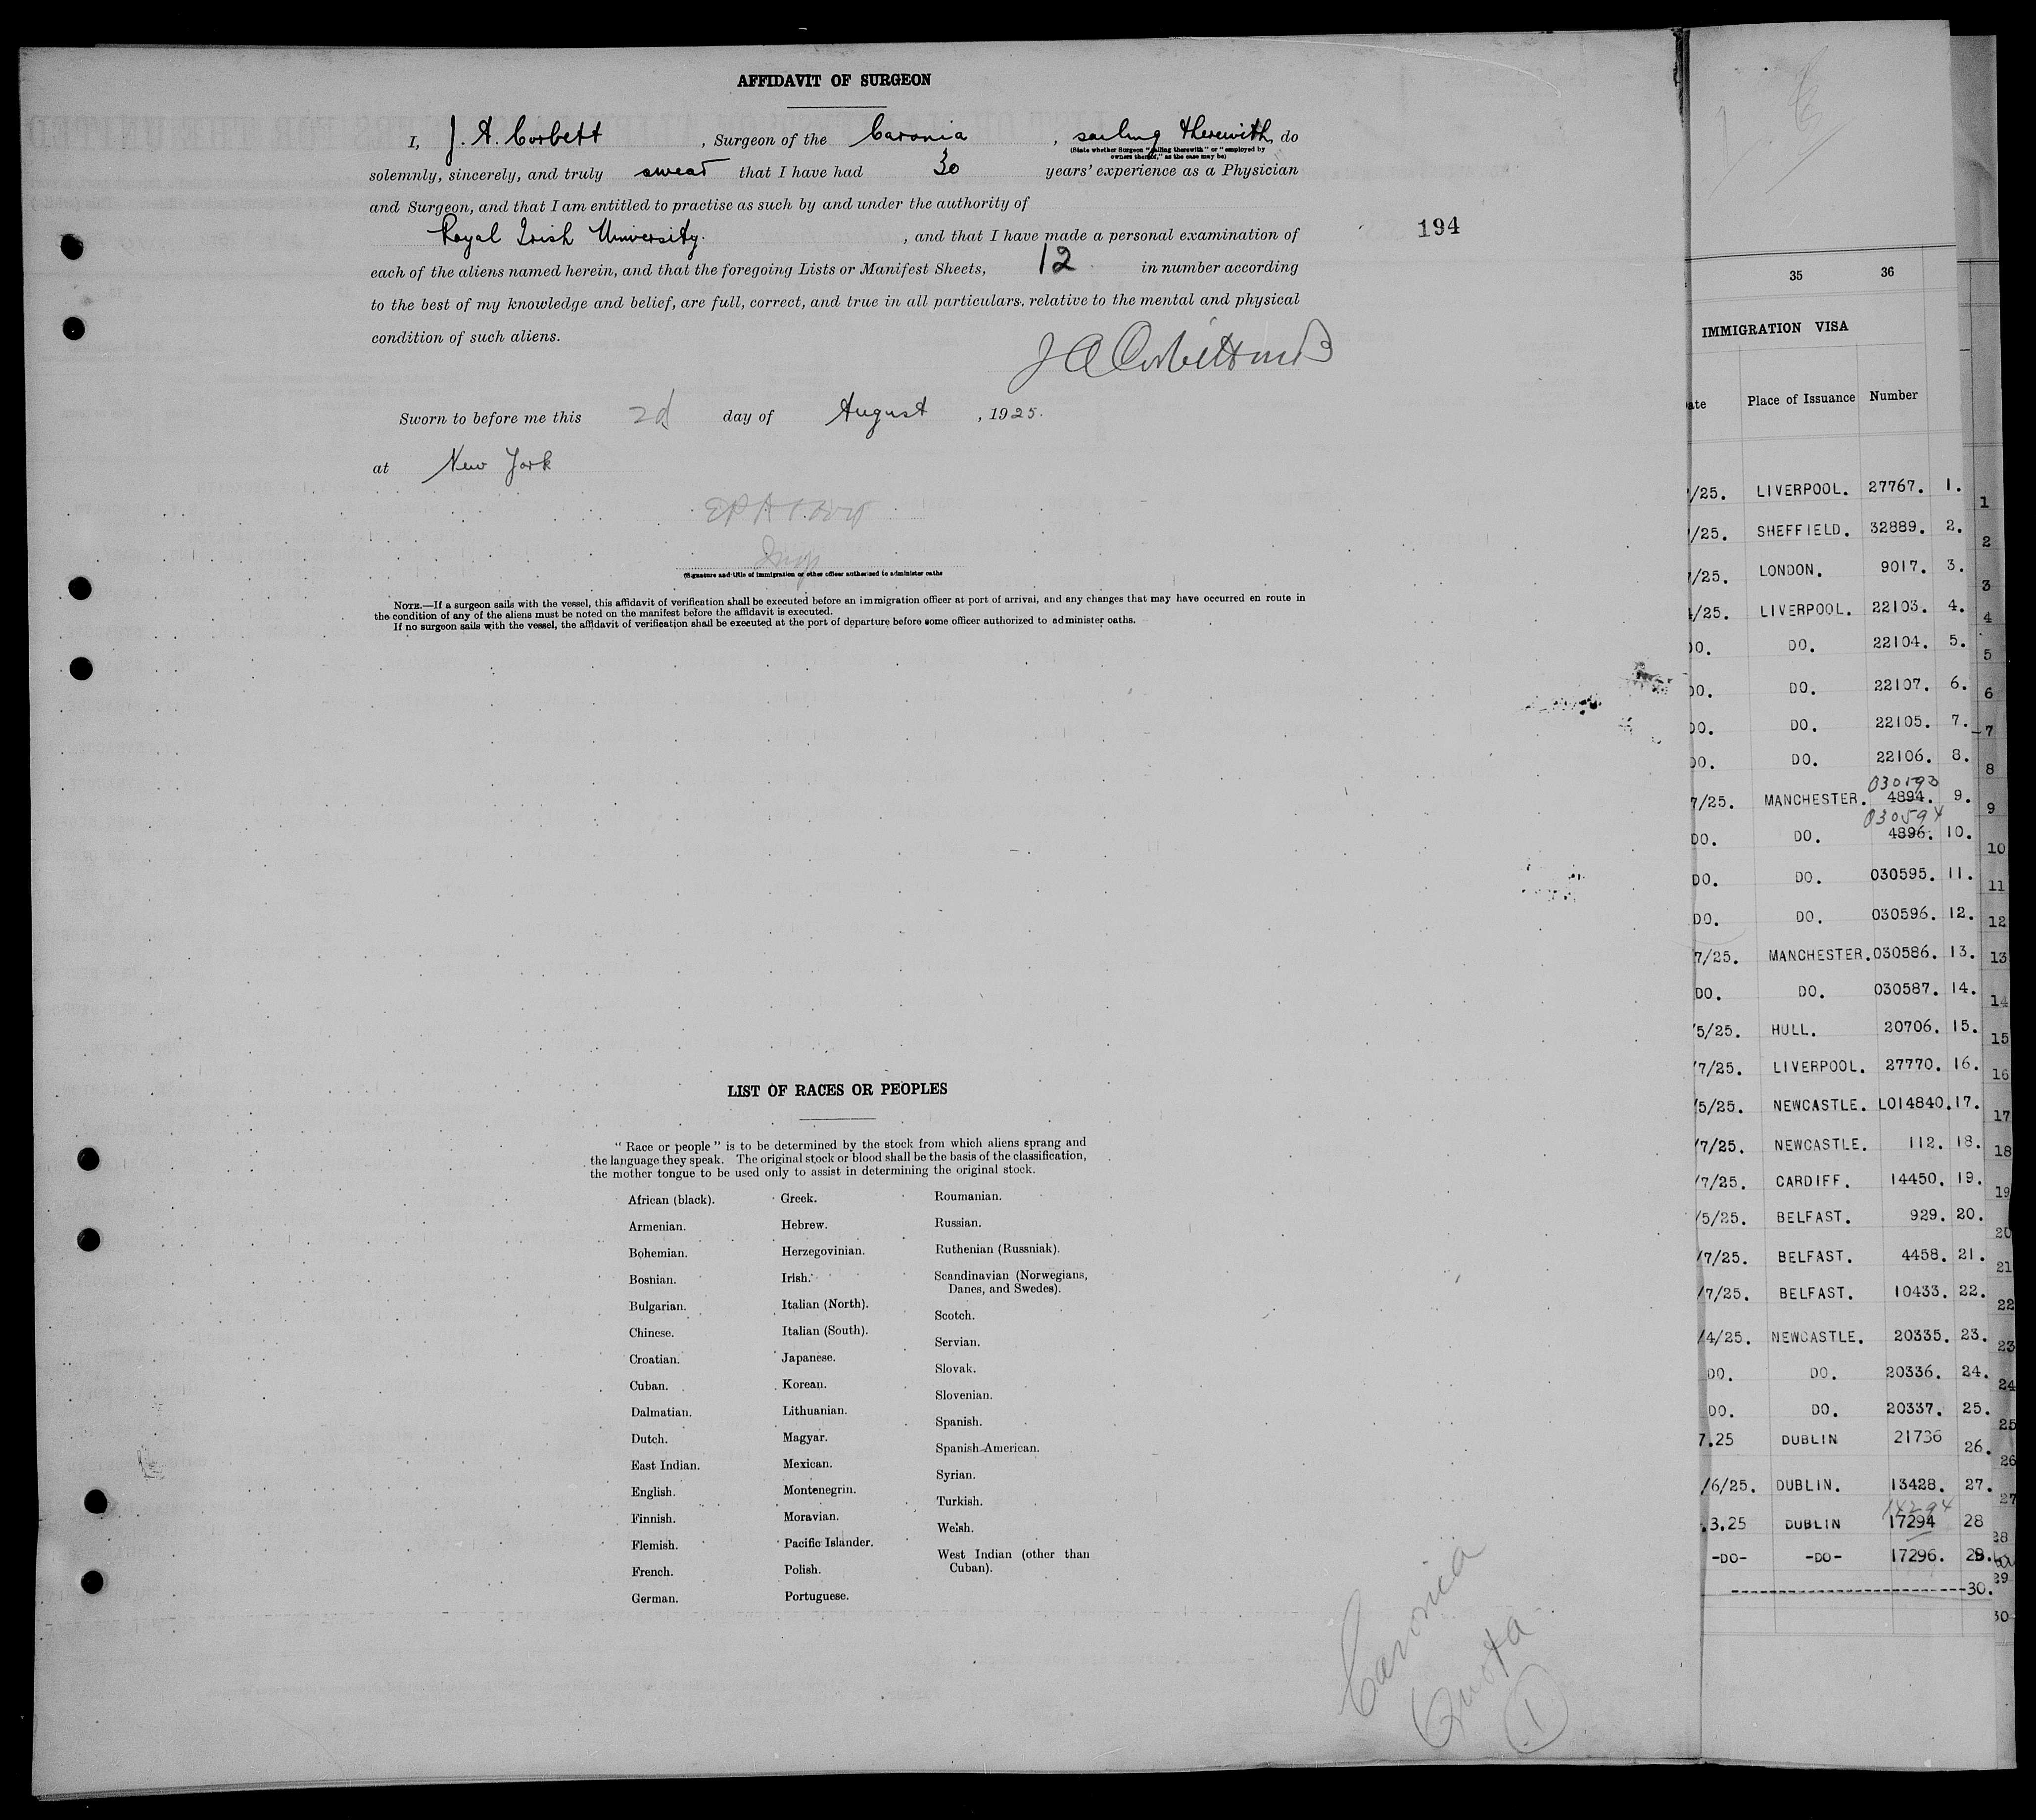 AFFIDAVIT OF SURGEON
I, J. A. Corbett, Surgeon of the Caronia, sailing therewith, do
(State whether Surgeon "sailing therewith" or "employed by
owners thereof," as the case may be)
solemnly, sincerely, and truly swear that I have had 30 years' experience as a Physician
and Surgeon, and that I am entitled to practise as such by and under the authority of
Royal Irish University. , and that I have made a personal examination of
each of the aliens named herein, and that the foregoing Lists or Manifest Sheets, 12 in number according
to the best of my knowledge and belief, are full, correct, and true in all particulars, relative to the mental and physical
condition of such aliens.
J A Corbett MB
Sworn to before me this 2d day of August, 1925.
at New York
Insp
(Signature and title of immigration or other officer authorised to administer oaths
NOTE.—If a surgeon sails with the vessel, this affidavit of verification shall be executed before an immigration officer at port of arrival, and any changes that may have occurred en route in
the condition of any of the aliens must be noted on the manifest before the affidavit is executed.
If no surgeon sails with the vessel, the affidavit of verification shall be executed at the port of departure before some officer authorized to administer oaths.
194
LIST OF RACES OR PEOPLES
"Race or people" is to be determined by the stock from which aliens sprang and
the language they speak. The original stock or blood shall be the basis of the classification,
the mother tongue to be used only to assist in determining the original stock.
African (black).
Armenian.
Bohemian.
Bosnian.
Bulgarian.
Chinese.
Croatian.
Cuban.
Dalmatian.
Dutch.
East Indian.
English.
Finnish.
Flemish.
French.
German.
Greek.
Hebrew.
Herzegovinian.
Irish.
Italian (North).
Italian (South).
Japanese.
Korean.
Lithuanian.
Magyar.
Mexican.
Montenegrin.
Moravian.
Pacific Islander.
Polish.
Portuguese.
Roumanian.
Russian.
Ruthenian (Russniak).
Scandinavian (Norwegians,
Danes, and Swedes).
Scotch.
Servian.
Slovak.
Slovenian.
Spanish.
Spanish-American.
Syrian.
Turkish.
Welsh.
West Indian (other than
Cuban).
Caronia
Quota
1
35 36
IMMIGRATION VISA
ate Place of Issuance Number
/25. LIVERPOOL. 27767. 1. 1
/25. SHEFFIELD. 32889. 2. 2
/25. LONDON. 9017. 3. 3
4/25. LIVERPOOL. 22103. 4. 4
DO. DO. 22104. 5. 5
DO. DO. 22107. 6. 6
DO. DO. 22105. 7. 7
DO. DO. 22106. 8. 8
030193
7/25. MANCHESTER. 4894. 9. 9
030594
DO. DO. 4896. 10. 10
DO. DO. 030595. 11. 11
DO. DO. 030596. 12. 12
7/25. MANCHESTER. 030586. 13. 13
DO. DO. 030587. 14. 14
/5/25. HULL. 20706. 15. 15
/7/25. LIVERPOOL. 27770. 16. 16
/5/25. NEWCASTLE. L014840. 17. 17
/7/25. NEWCASTLE. 112. 18. 18
/7/25. CARDIFF. 14450. 19. 19
/5/25. BELFAST. 929. 20. 20
/7/25. BELFAST. 4458. 21. 21
/7/25. BELFAST. 10433. 22. 22
/4/25. NEWCASTLE. 20335. 23. 23
DO. DO. 20336. 24. 24
DO. DO. 20337. 25. 25
7.25 DUBLIN 21736 26. 26
/6/25. DUBLIN. 13428. 27. 27
14294
.3.25 DUBLIN 17294 28 28
-DO- -DO- 17296. 29. 29
30. 30